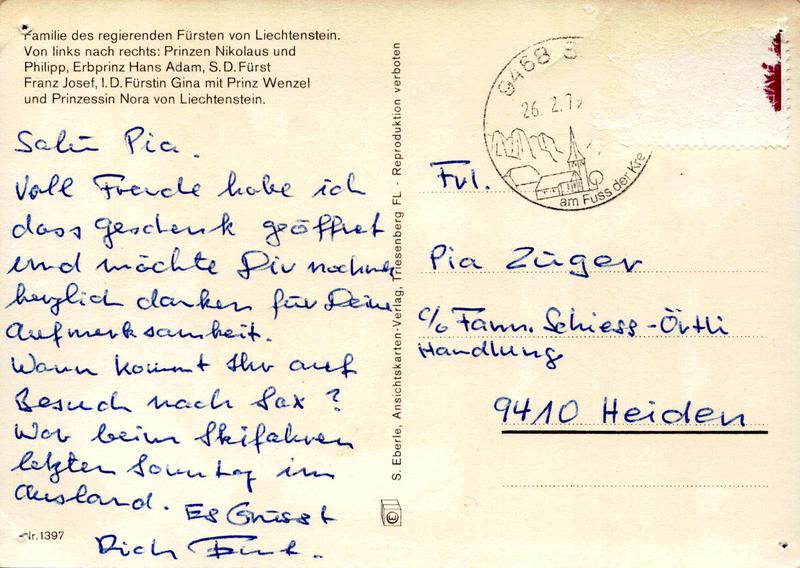 Familie des regierenden Fürsten von Liechtenstein.
Von links nach rechts: Prinzen Nikolaus und
Philipp, Erbprinz Hans Adam, S.D. Fürst
Franz Josef, I.D. Fürstin Gina mit Prinz Wenzel
und Prinzessin Nora von Liechtenstein.
Salü Pia.
Voll Freude habe ich
dass Geschenk geöffnet
und möchte Dir nochmals
herzlich danken für Deine
Aufmerksamkeit.
Wann kommt Ihr auf
Besuch nach Sax?
War beim Skifahren
letzten Sonntag im
Ausland. Es Grüsst
Dich
Nr. 1397
S. Eberle, Ansichtskarten-Verlag, Triesenberg FL - Reproduktion verboten
9468 S
26.2.79
am Fuss der Kre
Frl.
Pia Züger
c/o Fam. Schiess-Örtli
Handlung
9410 Heiden